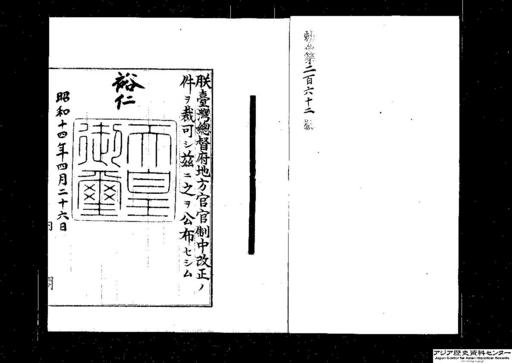 勅令第二百六十二號
朕臺灣總督府地方官官制中改正ノ
件ヲ裁可シ茲ニ之ヲ公布セシム
裕仁
天皇
御璽
昭和十四年四月二十六日
アジア歴史資料センター
Japan Center for Asian Historical Records